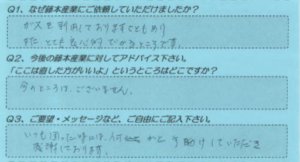 Q1、なぜ藤本産業にご依頼していただけましたか?
ガスを利用しておりますこともあり
また、とても良心的でかるところです。
Q2、今後の藤本産業に対してアドバイス下さい。
「ここは直した方がいいよ」というところはどこですか?
今のところは、ございません。
Q3、ご要望・メッセージなど、ご自由にご記入下さい。
いつも困った時には、何かと手助けしていただき
感謝しております。